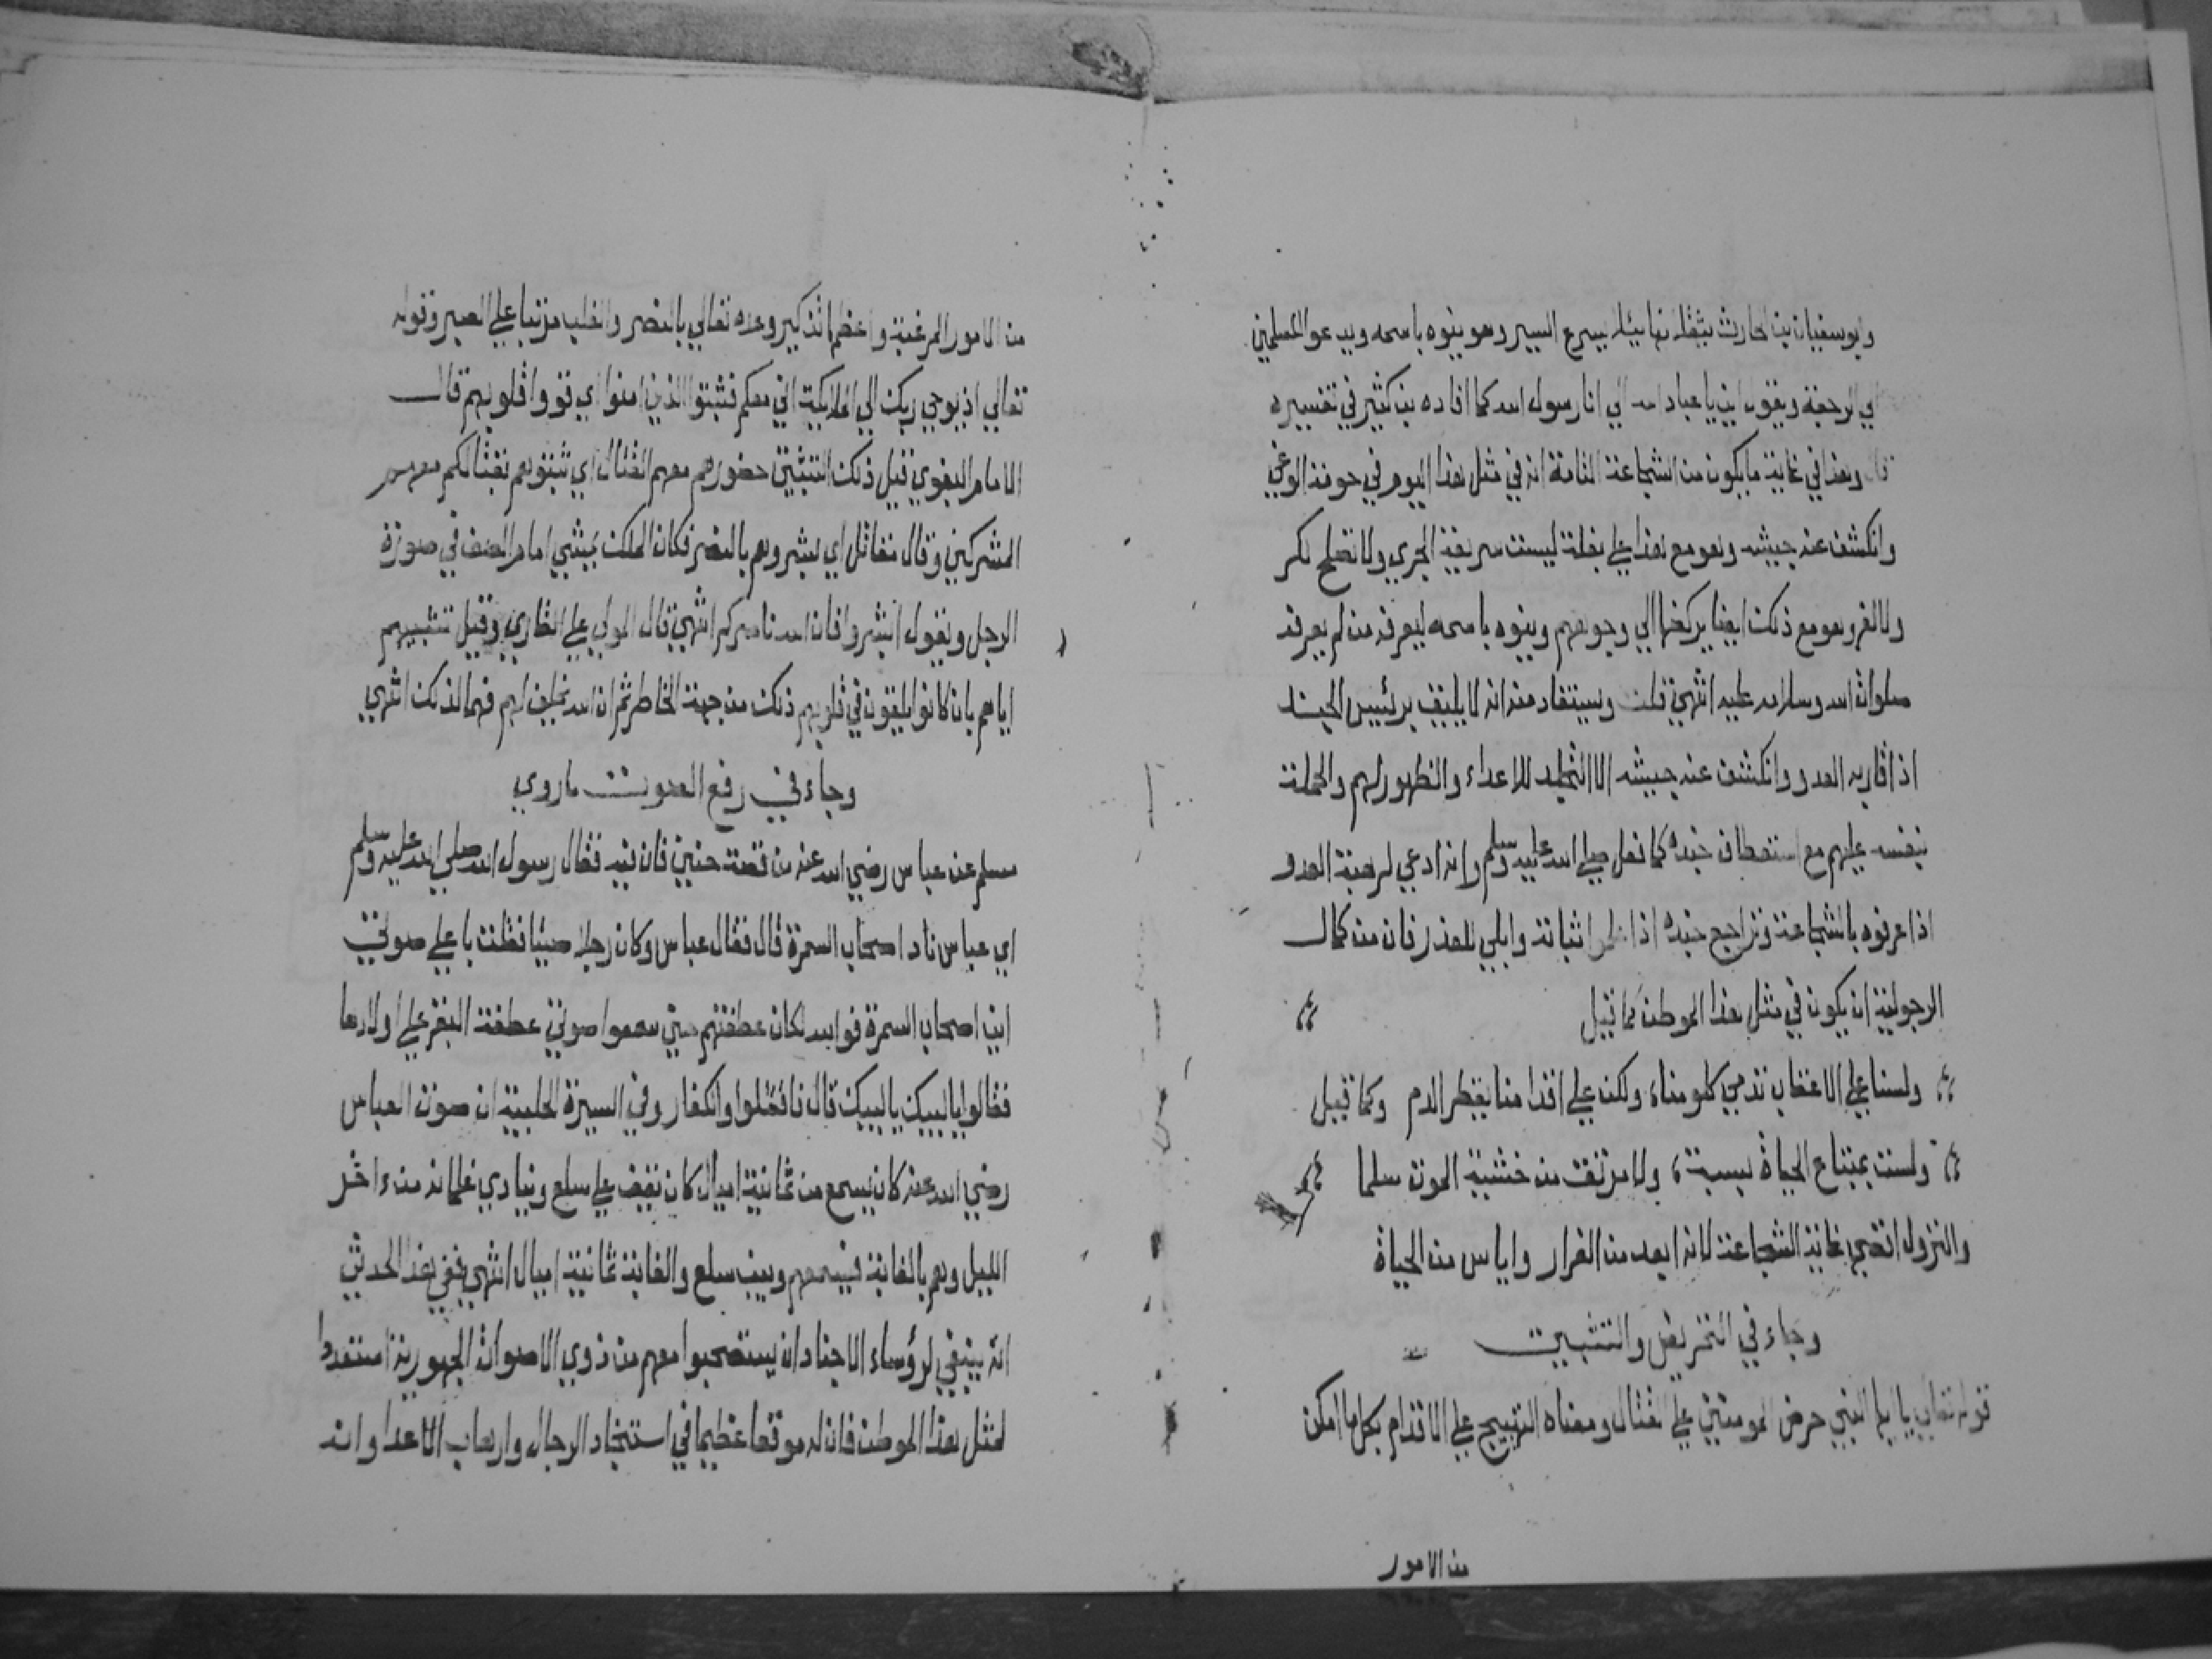 وابوسفيان بن الحارث يثقلانها ليلا يسرع السير وهو ينوه باسمه ويدعو المسلمين
الي الرجعة ويقول اين يا عباد الله الي انا رسول الله كما افاده بن كثير في تفسيره
قال وهذا في غاية ما يكون من الشجاعة التامة انه في مثل هذا اليوم في حومة الوغي
وانكشف عنه جيشه وهو مع هذا علي بغلة ليست سريعة الجري ولا تصلح لكر
ولا لفر وهو مع ذلك ايضا يركضها الي وجوههم وينوه باسمه ليعرفه من لم يعرفه
صلوات الله وسلامه عليه انتهي قلت ويستفاد منه انه لا يليق برئيس الجند
اذا قاربه العدو وانكشف عنه جيشه الا التجلد للاعداء والظهور لهم والحملة
بنفسه عليهم مع استعطاف جنده كما فعل صلي الله عليه وسلم وانه ادعي لرهبة العدو
اذا عرفوه بالشجاعة وتراجع جنده اذا ثباته وابلي للعذر فان من كمال
الرجولية ان يكون في مثل هذا الموطن كما قيل
ولسنا علي الاعقاب تدمي كلومنا ولكن علي اقدامنا يقطر الدم وكما قيل
ولست بمبتاع الحياة بسبة ولا مرتق من خشية الموت سلما
والنزول اقصي غاية الشجاعة لانه ابعد من الفرار واياس من الحياة
وجاء في التحريض والتثبيت
قوله تعالي يا ايها النبي حرض المومنين علي القتال ومعناه التهييج علي الاقدام بكل ما امكن
من الامور
من الامور المرغبة واعظمها تذكير وعده تعالي بالنصر والغلب مرتبا علي الصبر وقوله
تعالي اذ يوحي ربك الي الملايكة اني معكم فثبتوا الذين امنوا اي قووا قلوبهم قال
الامام البغوي قيل ذلك التثبيت حضورهم معهم القتال اي ثبتوهم بقتالكم معهم
المشركين وقال مقاتل اي بشروهم بالنصر فكان الملك يمشي امام الصف في صورة
الرجل ويقول ابشروا فان الله ناصركم انتهي قال المولي علي القاري وقيل تثبيتهم
اياهم بان كانوا يلقون في قلوبهم ذلك من جهة الخاطر ثم ان الله يخلق لهم فهما لذلك انتهي
وجاء في رفع الصوت ما روي
مسلم عن عباس رضي الله عنه من قصة حنين فان فيه فقال رسول الله صلي الله عليه وسلم
اي عباس ناد اصحاب السمرة قال فقال عباس وكان رجلا صيتا فقلت باعلي صوتي
اين اصحاب السمرة فوالله لكان عطفتهم حين سمعوا صوتي عطفة البقر علي اولادها
فقالوا يا لبيك يا لبيك قال فاقتتلوا والكفار وفي السيرة الحلبية ان صوت العباس
رضي الله عنه كان يسمع من ثمانية اميال كان يقف علي سلع وينادي غلمانه من ءاخر
الليل وهم بالغابة فيسمعهم وبين سلع والغابة ثمانية اميال انتهي ففي هذا الحديث
انه ينبغي لرؤساء الاجناد ان يستصحبوا معهم من ذوي الاصوات الجهورية استعدادا
لمثل هذا الموطن فان له موقعا عظيما في استنجاد الرجال وارهاب الاعدا وانه